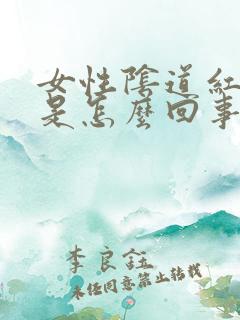 女性陰道紅
是怎麼回事
李良鈺
未經同意禁止轉載